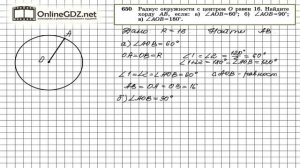 OnlineGDZ.net
650 Радиус окружности с центром O равен 16. Найдите
хорду AB, если: а) ∠AOB=60°; б) ∠AOB=90°;
в) ∠AOB=180°.
A
O
Дано R = 16 Найти AB
а) ∠AOB = 60°
OA = OB = R
∠1 = ∠2 =
∠1 + ∠2 = 180° - ∠AOB = 120°
∠1 = ∠2 = 60°
AB = OA = OB = 16
б) ∠AOB = 90°